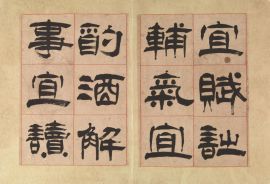 宜賦詩
輔氣宜
酌酒解
事宜讀